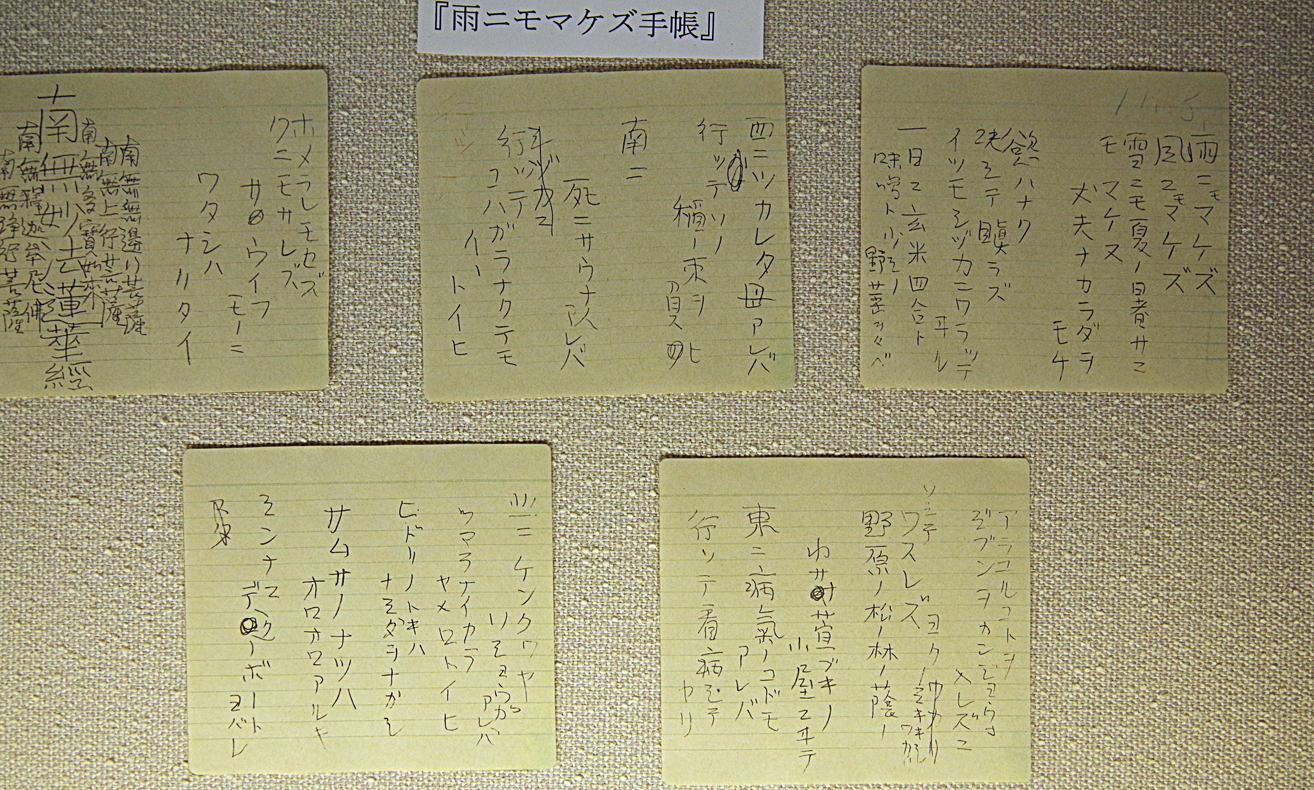 『雨ニモマケズ手帳』
雨ニモマケズ
風ニモマケズ
雪ニモ夏ノ暑サニ
モ マケヌ
丈夫ナカラダヲ
モチ
慾ハナク
決シテ瞋ラズ
イツモシヅカニワラッテ
ヰル
一日ニ玄米四合ト
味噌ト少シノ
野菜ヲタベ
アラユルコトヲ
ジブンヲカンジョウニ
入レズニ
ヨクミキキシワカリ
ソシテ
ワスレズ
野原ノ松ノ林ノ蔭ノ
小サナ萱ブキノ
小屋ニヰテ
東ニ病氣ノコドモ
アレバ
行ッテ看病シテ
ヤリ
西ニツカレタ母アレバ
行ッテソノ
稲ノ束ヲ
負ヒ
南ニ
死ニサウナ人アレバ
行ッテ
コハガラナクテモ
イヽトイヒ
北ニケンクヮヤ
ソショウガ
アレバ
ツマラナイカラ
ヤメロトイヒ
ヒドリノトキハ
ナミダヲナガシ
サムサノナツハ
オロオロアルキ
ミンナニ
デクノボート
ヨバレ
ホメラレモセズ
クニモサレズ
サウイフ
モノニ
ワタシハ
ナリタイ
南無無邊行菩薩
南無上行菩薩
南無多寶如來
南無妙法蓮華經
南無釋迦牟尼佛
南無浄行菩薩